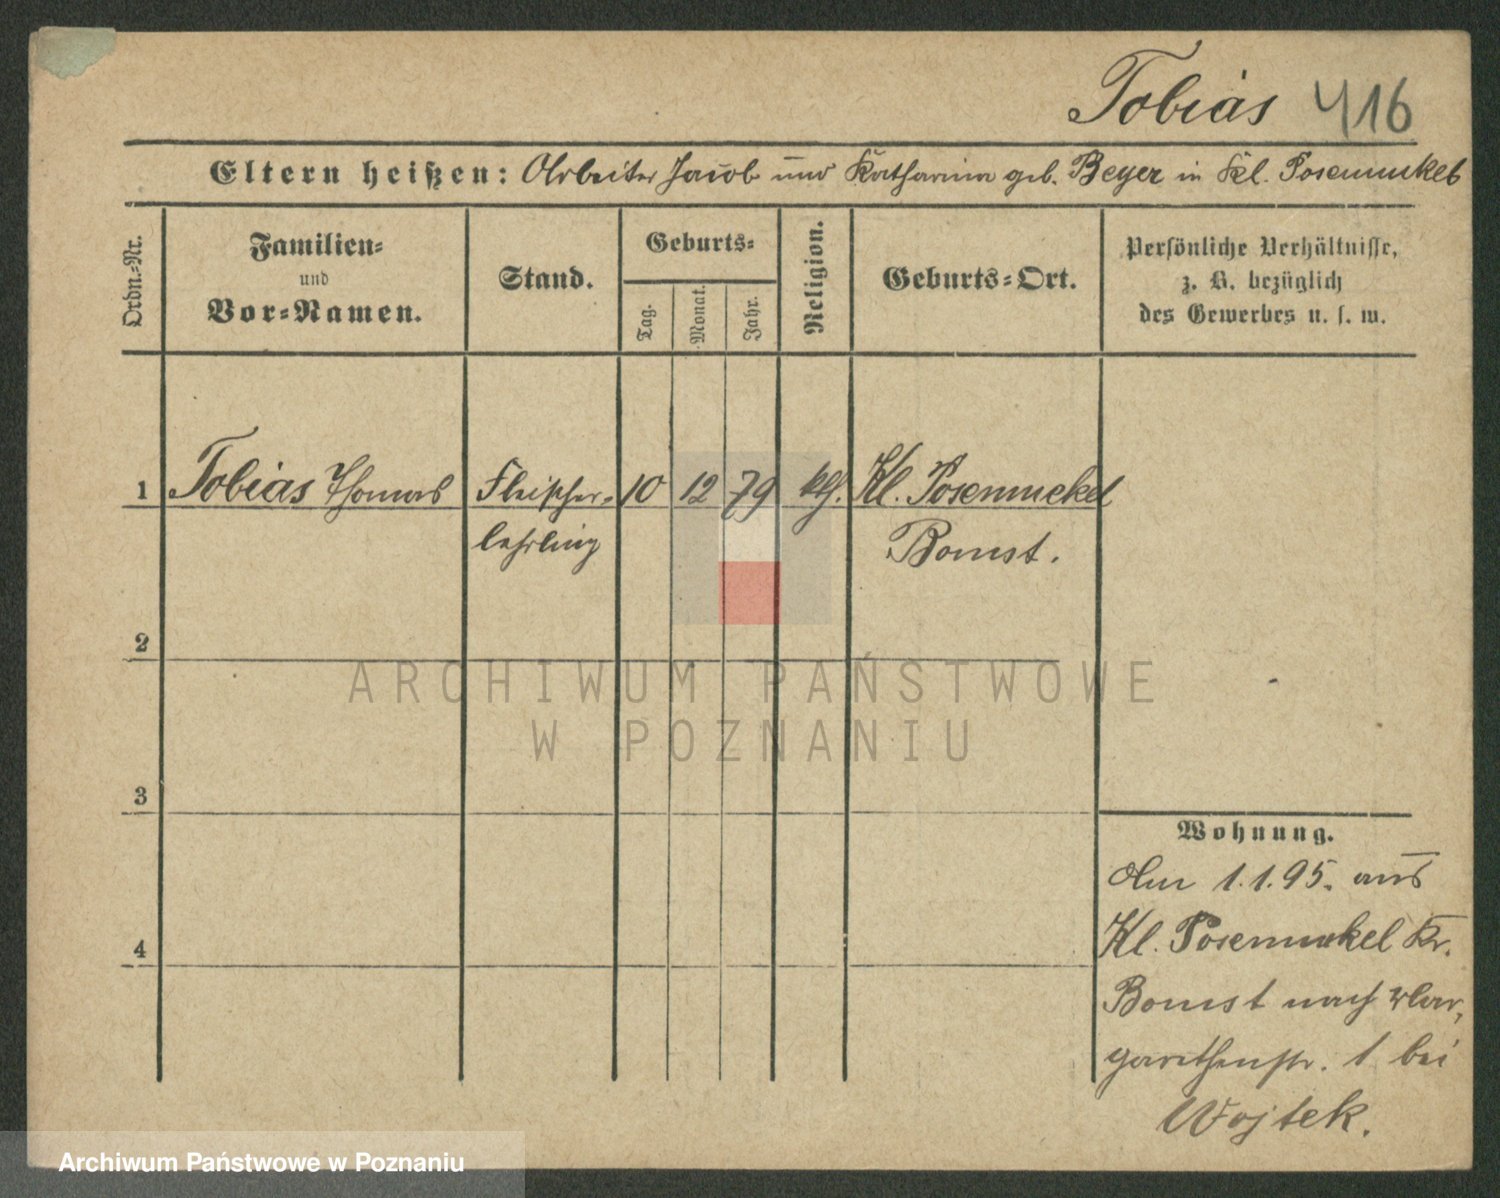 Tobias 416
Eltern heißen: Arbeiter Jacob und Katharina geb. Beyer in Kl. Posemukel
Ordn.-Nr.
Familien-
und
Vor-Namen.
Stand.
Geburts-
Tag.
Monat.
Jahr.
Religion.
Geburts-Ort.
Persönliche Verhältnisse,
z. B. bezüglich
des Gewerbes u. s. w.
1 Tobias Thomas Fleischer- 10 12 79 kth. Kl. Posemukel
lehrling Bomst.
2
3
4
ARCHIWUM PAŃSTWOWE
W POZNANIU
Wohnung.
Am 1.1.95. aus
Kl. Posemukel Kr.
Bomst nach Mar-
garethenstr. 1 bei
Wojtek.
Archiwum Państwowe w Poznaniu